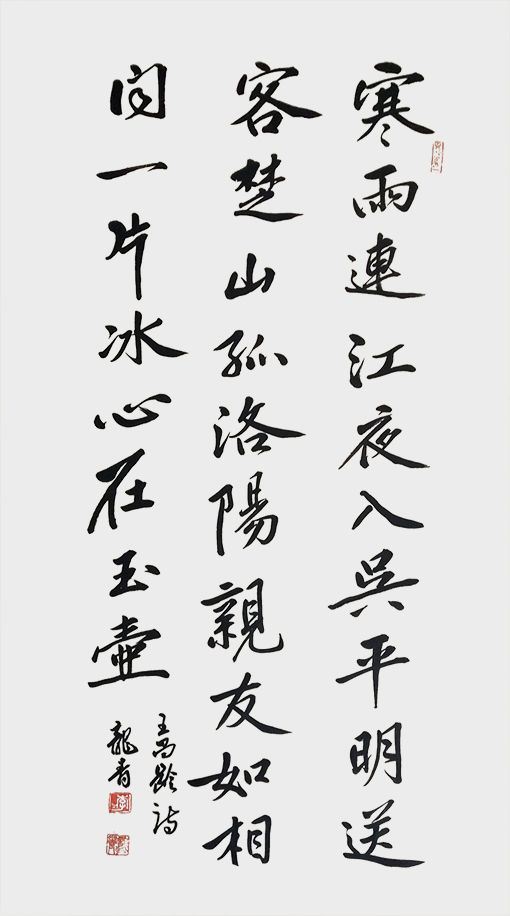 寒雨連江夜入吳平明送
客楚山孤洛陽親友如相
问一片冰心在玉壺
王昌齡詩
龍青